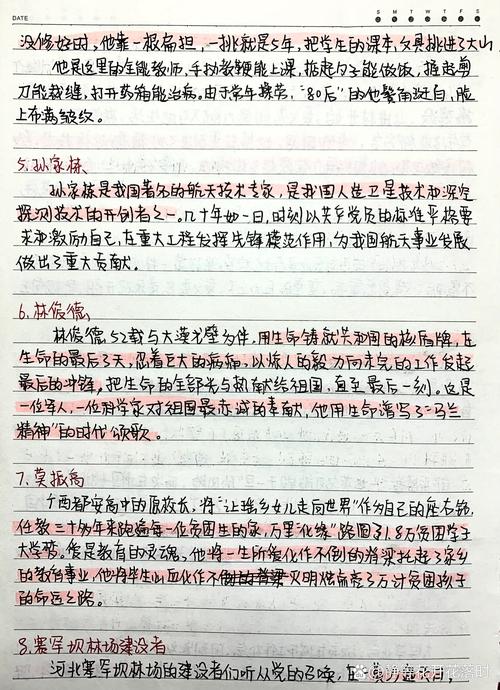 DATE
S M T W T F S
没修好时，他靠一根扁担，一挑就是5年，把学生的课本、文具挑进了大山
他是这里的全能教师，手执教鞭能上课，掂起勺子能做饭，握起剪
刀能裁缝，打开药箱能治病。由于常年操劳，"80后"的他鬓角斑白，脸
上布满皱纹。
5.孙家栋
孙家栋是我国著名的航天技术专家，是我国人造卫星技术和深空
探测技术的开创者之一。几十年如一日，时刻以共产党员的标准严格要
求和激励自己，在重大工程发挥先锋模范作用，为我国航天事业发展
做出了重大贡献。
6.林俊德
林俊德52载与大漠戈壁为伴，用生命铸就共和国的核盾牌，在
生命的最后3天，忍着巨大的病痛，以惊人的毅力向未完的工作发起
最后的冲锋，把生命的全部光与热献给祖国，直至最后一刻。这是
一位军人，一位科学家对祖国最赤诚的奉献，他用生命谱写了"马兰
精神"的时代颂歌。
7.莫振高
广西都安高中的原校长，将"让瑶乡女儿走向世界"作为自己的座右铭，
任教三十多年来跑遍每一位贫困生的家，万里"化缘"路圆了1.8万贫困学子
大学梦。像是教育的灵魂，他将一生所能化作不倒的脊梁托起了家乡
的教育事业，他将毕生心血化作不倒的脊梁灭明烛点亮了万计贫困孩子
的命运之路。
8.塞罕坝林场建设者
河北塞罕坝林场的建设者们听从党的召唤，在